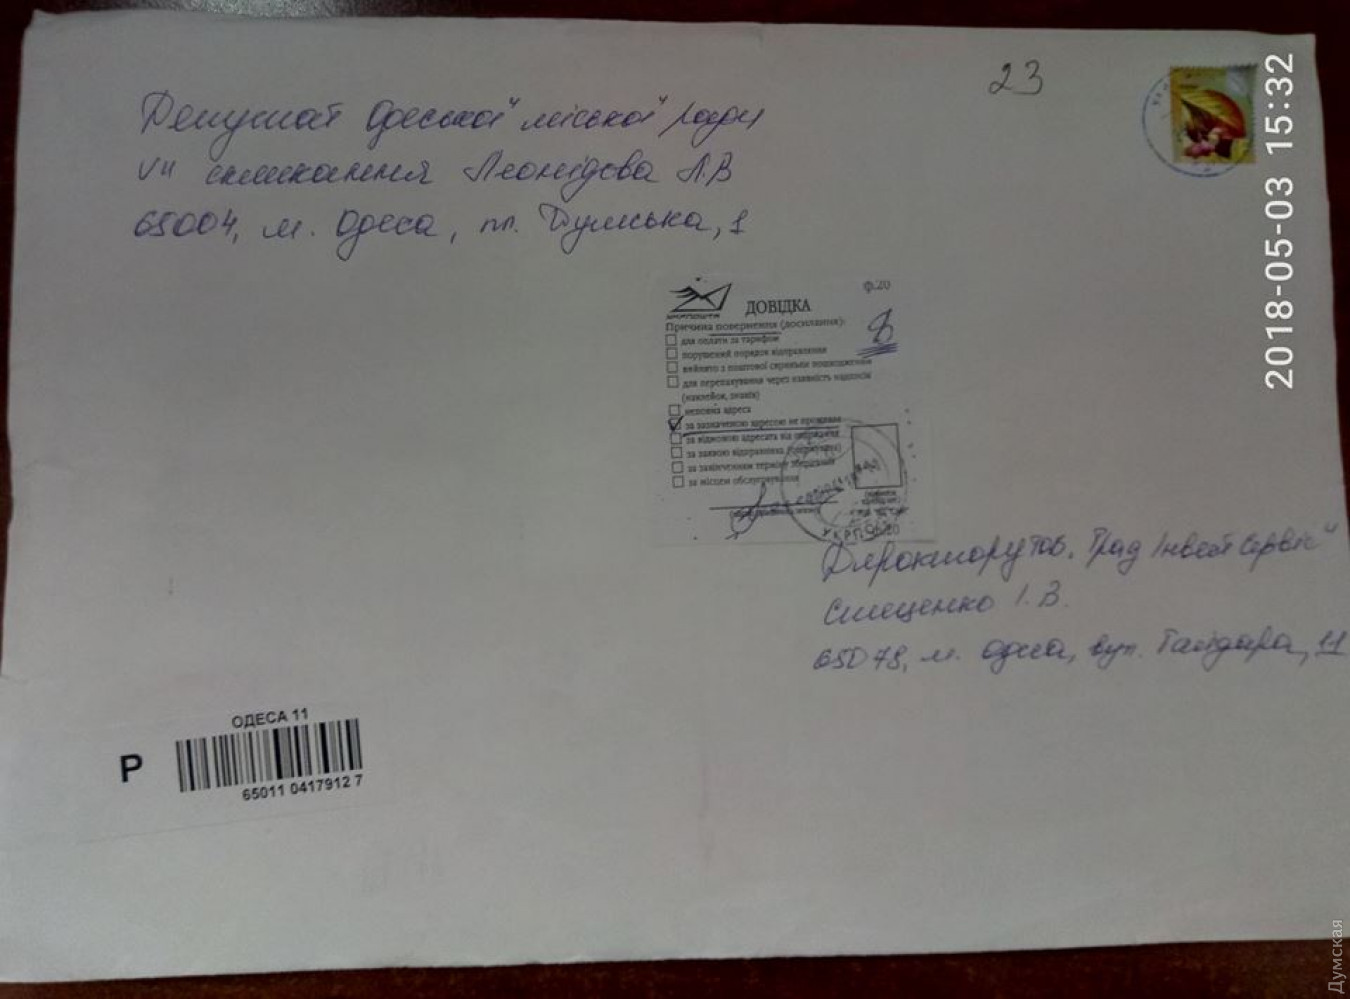 Депутат Одеської міської ради
VII скликання Леонідова Л.В
65004, м. Одеса, пл. Думська, 1
23
2018-05-03 15:32
УКРПОШТА
ф.20
ДОВІДКА
Причина повернення (досилання):
8
для оплати за тарифом
порушений порядок відправлення
вийнято з поштової скриньки пошкодженим
для перепакування через наявність надписів
(наклейок, знаків)
неповна адреса
за зазначеною адресою не проживає
за відмовою адресата від одержання
за заявою відправника (одержувача)
за закінченням терміну зберігання
за місцем обслуговування
ф.20
Директору тов. Град Інвест Сервіс"
І.В.
65078, м. Одеса, вул. Гайдара, 11
ОДЕСА 11
Р
65011 0417912 7
Думская